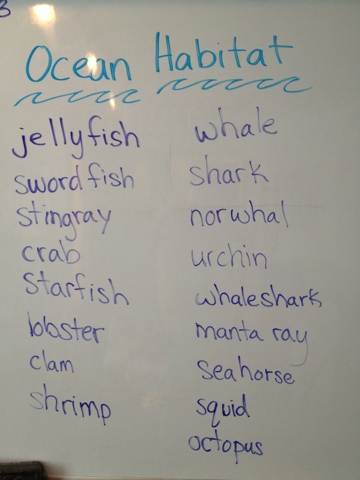 Ocean Habitat
jellyfish
swordfish
stingray
crab
Starfish
lobster
clam
shrimp
whale
shark
norwhal
urchin
whaleshark
manta ray
seahorse
squid
octopus